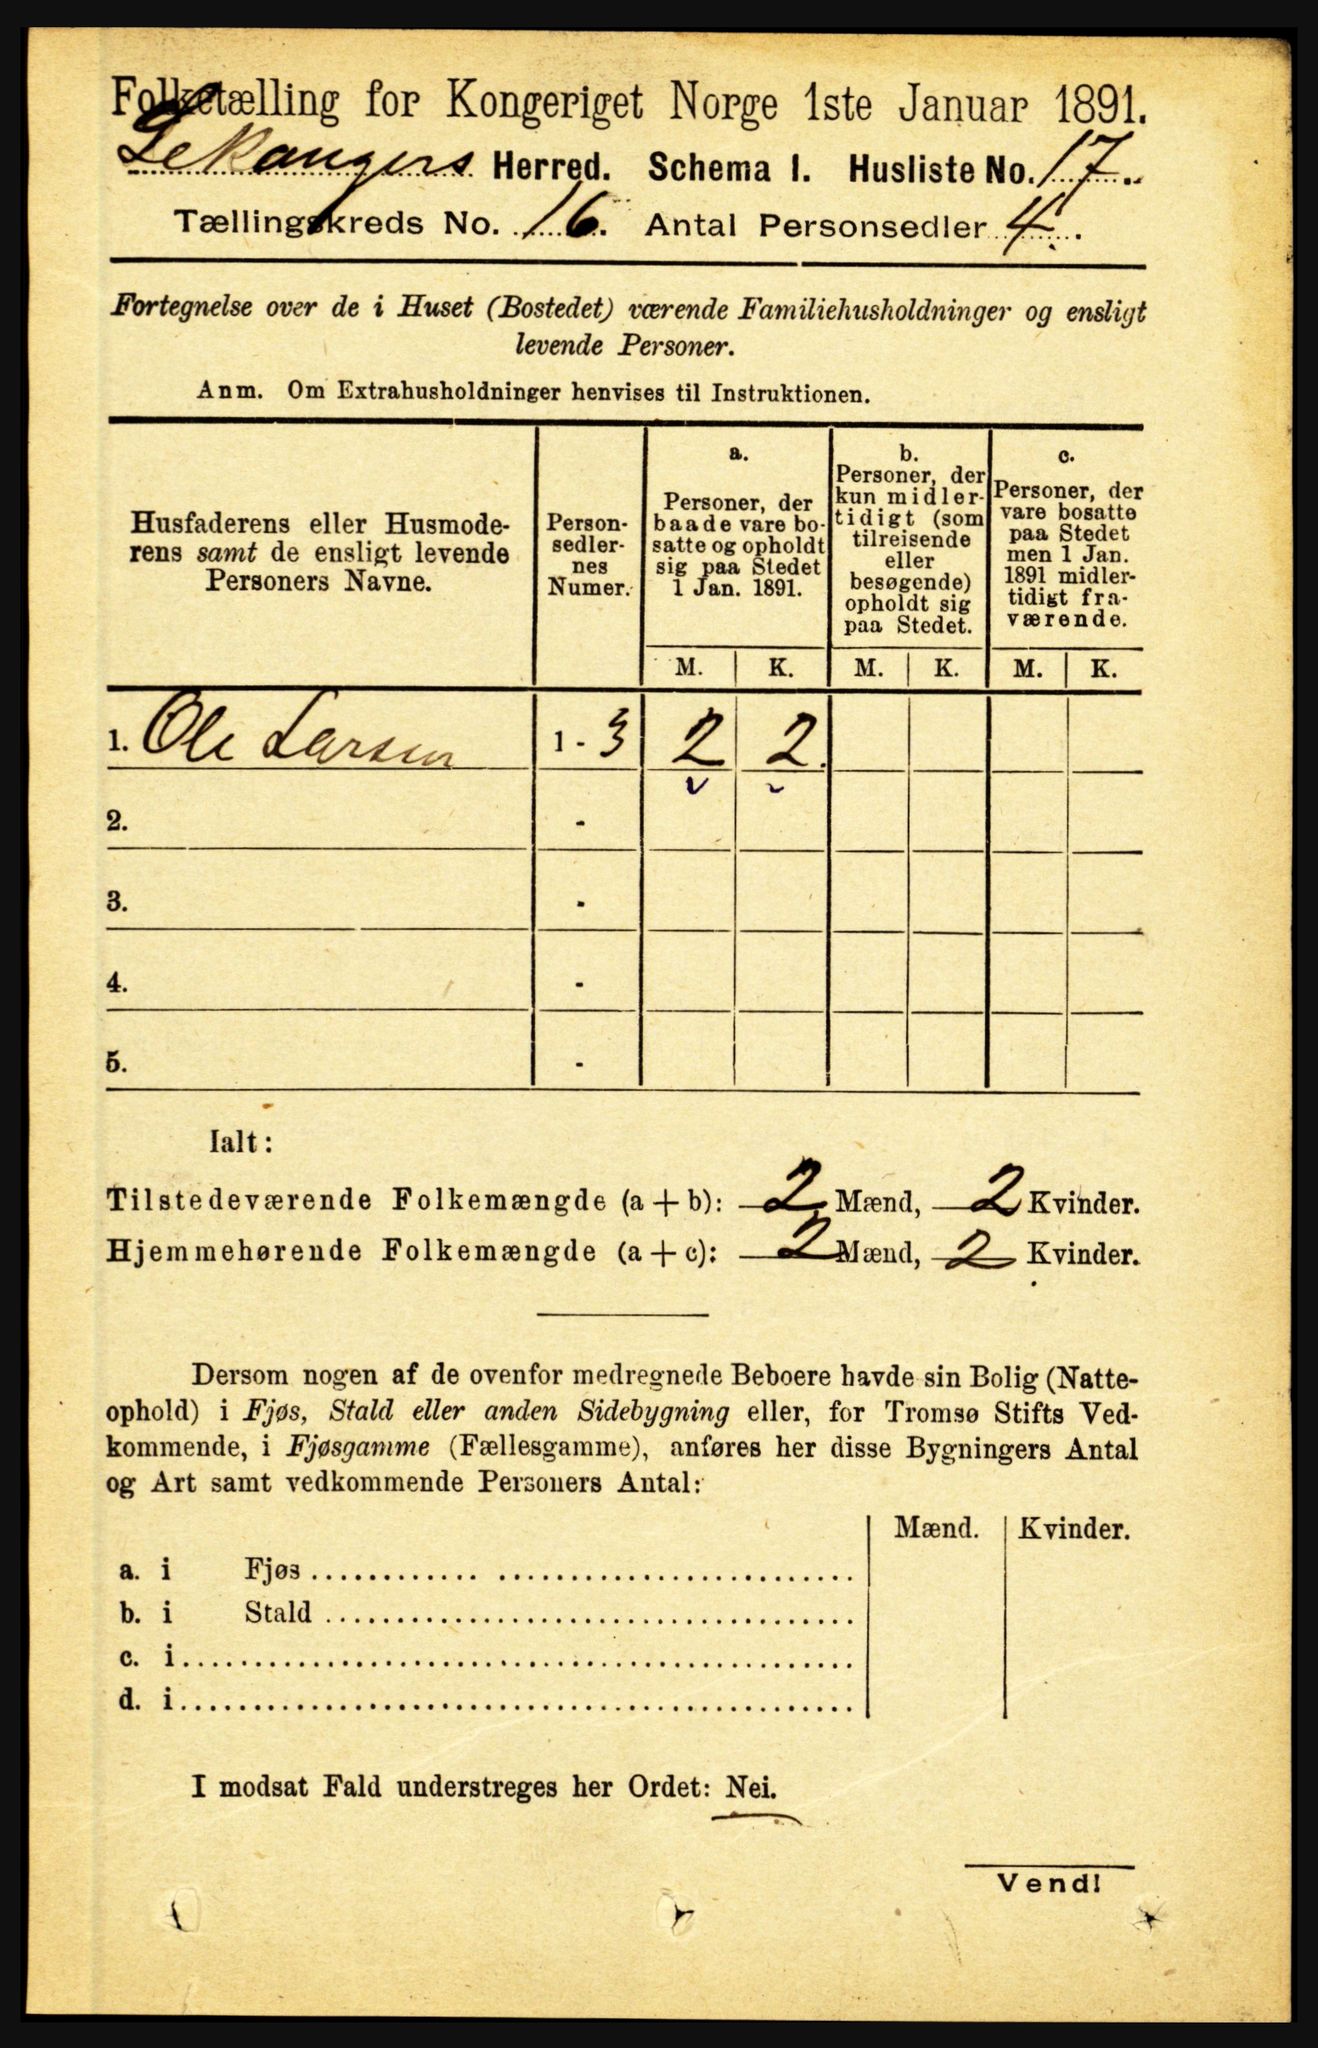 Folketælling for Kongeriget Norge 1ste Januar 1891.
Lekangers Herred. Schema I. Husliste No. 17.
Tællingskreds No. 16. Antal Personsedler 4.
Fortegnelse over de i Huset (Bostedet) værende Familiehusholdninger og ensligt
levende Personer.
Anm. Om Extrahusholdninger henvises til Instruktionen.
Husfaderens eller Husmode-
rens samt de ensligt levende
Personers Navne.
Person-
sedler-
nes
Numer.
a.
Personer, der
baade vare bo-
satte og opholdt
sig paa Stedet
1 Jan. 1891.
b.
Personer, der
kun midler-
tidigt (som
tilreisende
eller
besøgende)
opholdt sig
paa Stedet.
c.
Personer, der
vare bosatte
paa Stedet
men 1 Jan.
1891 midler-
tidigt fra-
værende.
M. K. M. K. M. K.
1. Ole Larsen 1 - 3 2 2.
2. -
3. -
4. -
5. -
Ialt:
Tilstedeværende Folkemængde (a + b): 2 Mænd, 2 Kvinder.
Hjemmehørende Folkemængde (a + c): 2 Mænd, 2 Kvinder.
Dersom nogen af de ovenfor medregnede Beboere havde sin Bolig (Natte-
ophold) i Fjøs, Stald eller anden Sidebygning eller, for Tromsø Stifts Ved-
kommende, i Fjøsgamme (Fællesgamme), anføres her disse Bygningers Antal
og Art samt vedkommende Personers Antal:
Mænd. Kvinder.
a. i Fjøs
b. i Stald
c. i
d. i
I modsat Fald understreges her Ordet: Nei.
Vend!